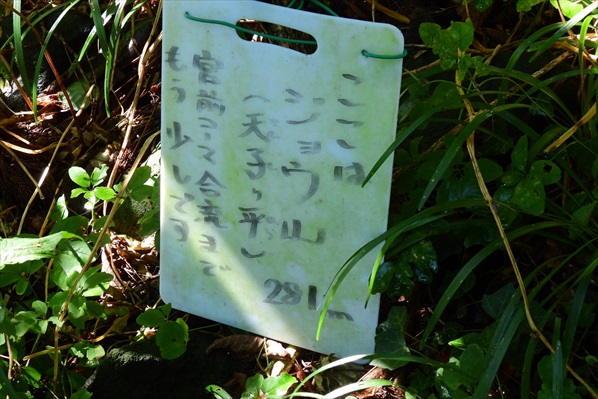 ここは
ショウ山
(天子ヶ平し
281m
宮前コース合流まで
もう少しです